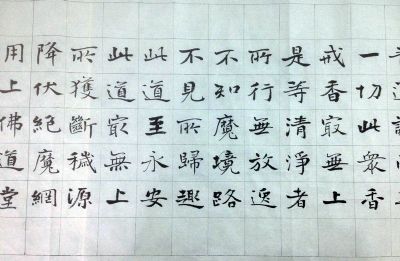 一切此衆香
戒香最無上
是等清淨者
所行無放逸
不知魔境路
不見所歸趣
此道至永安
此道最無上
所獲斷穢源
降伏絕魔網
用上佛道堂